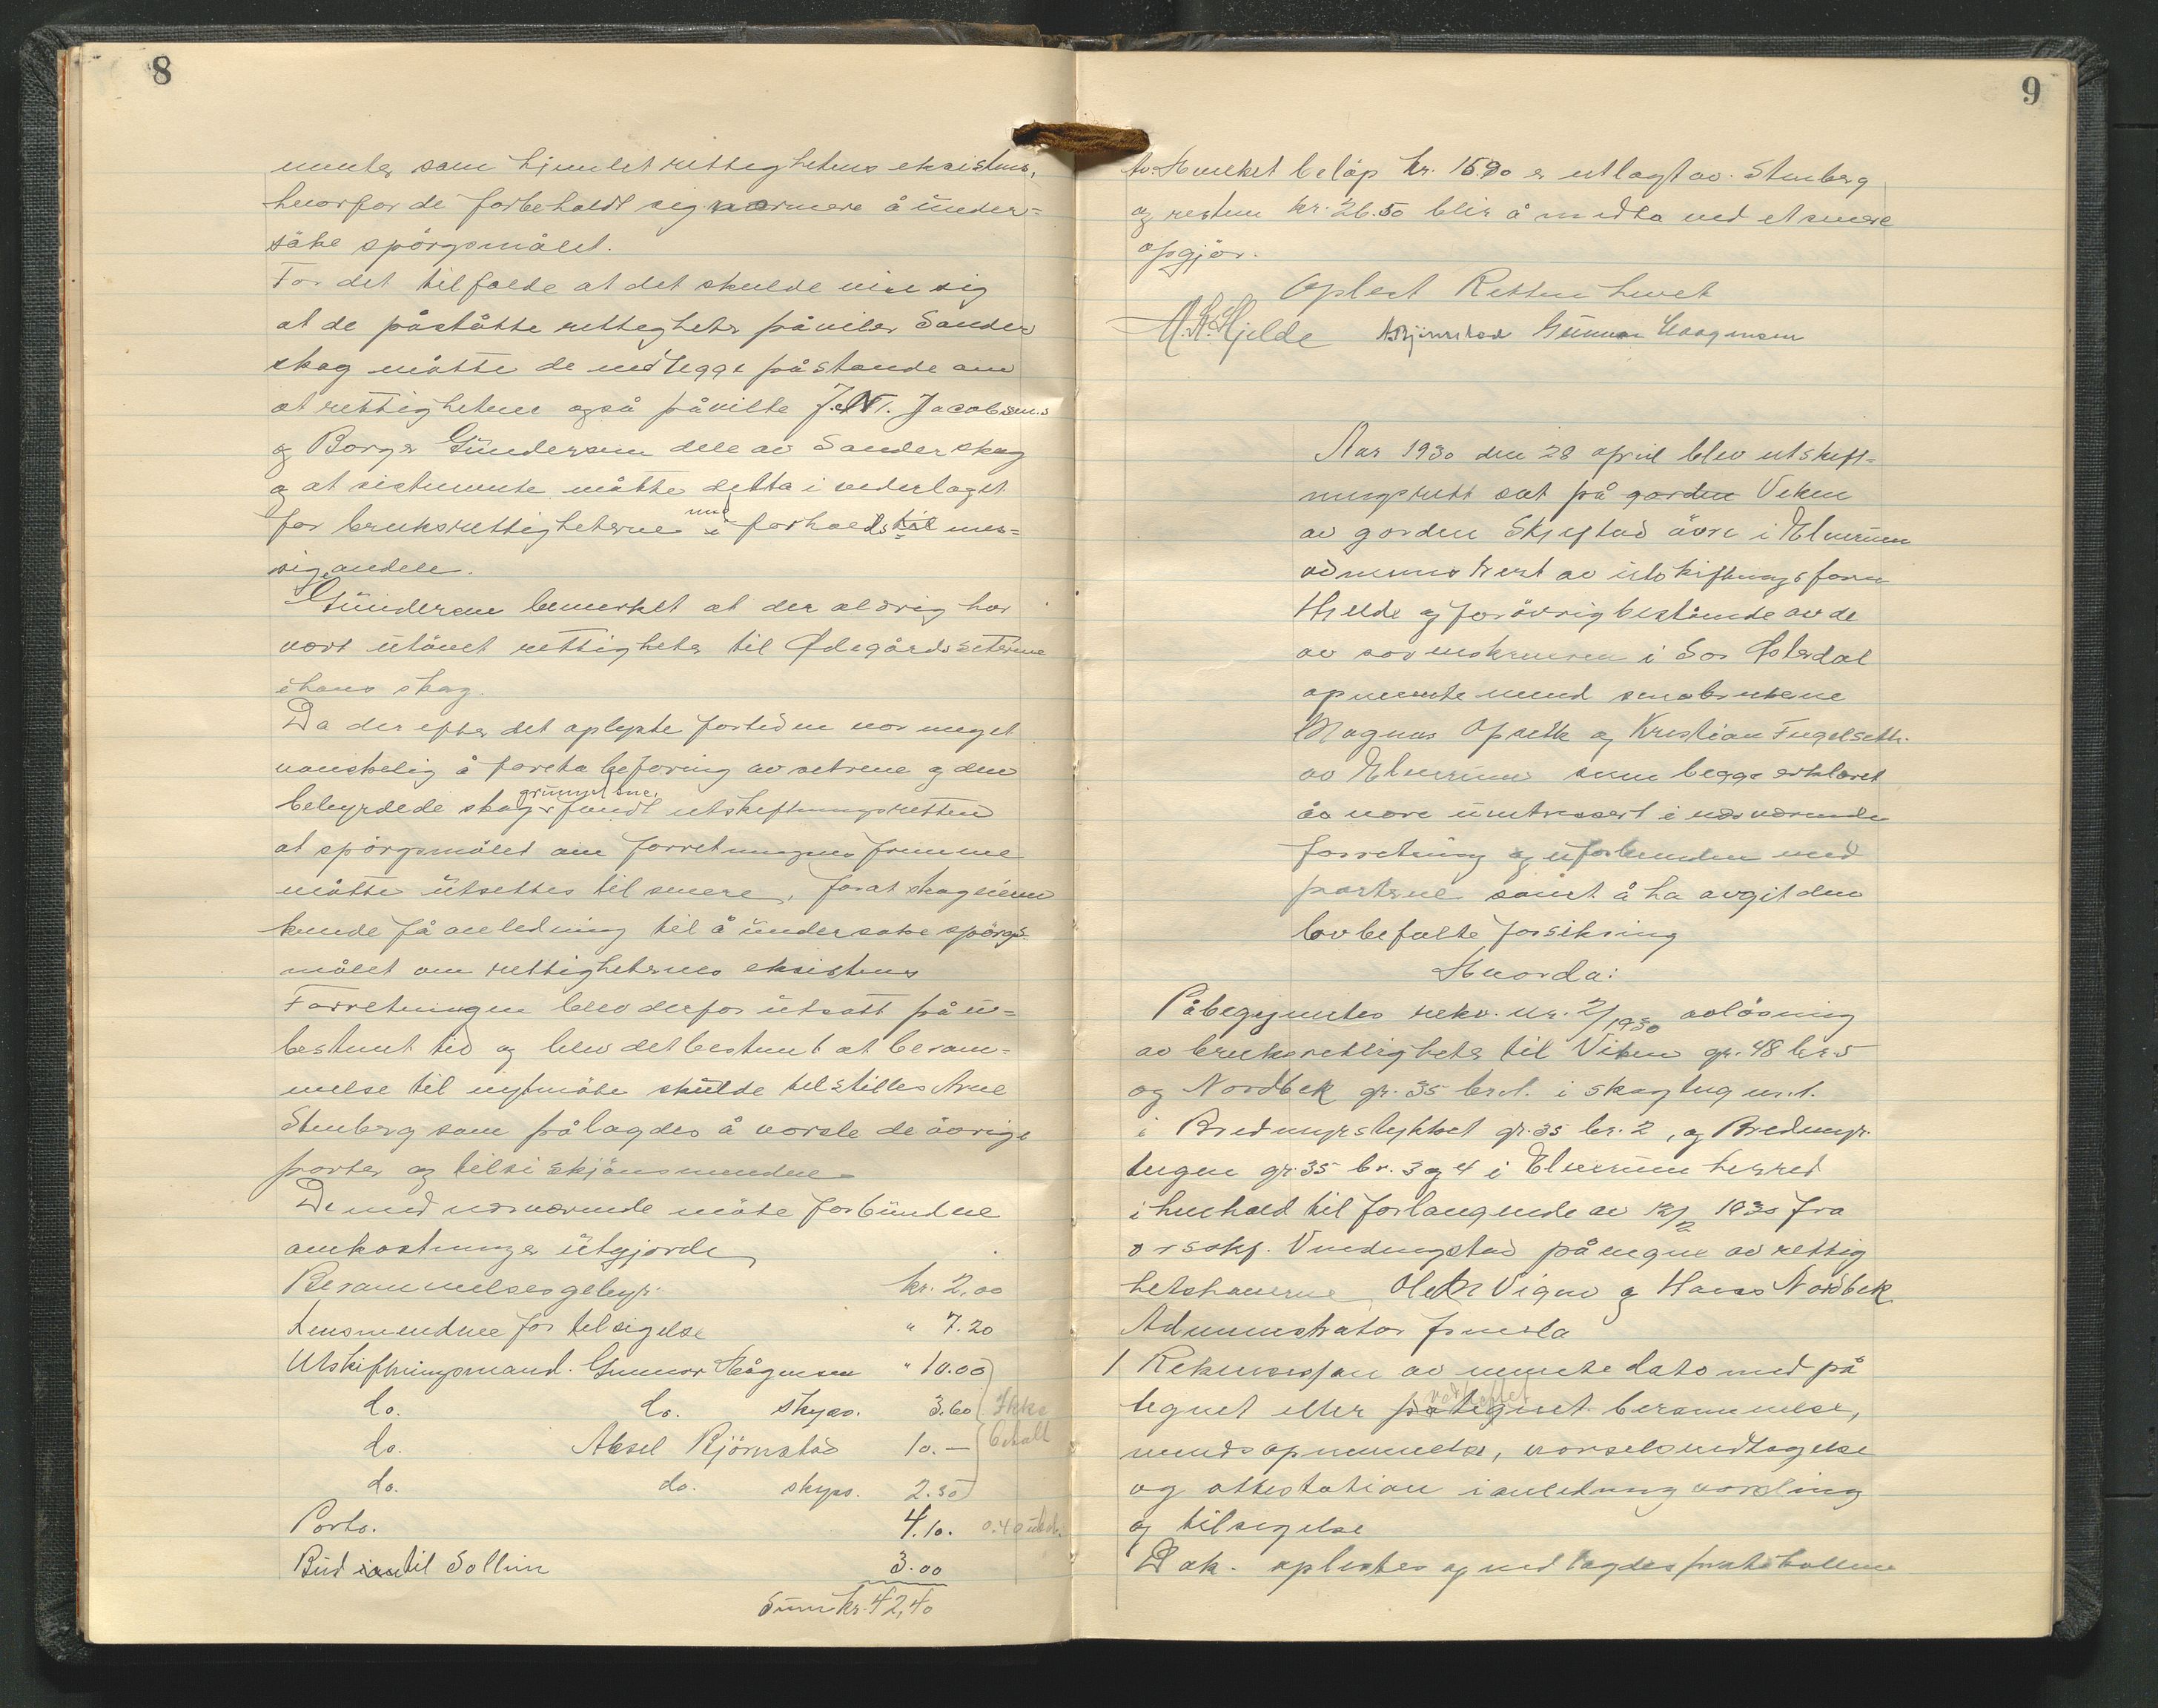 8
menter som hjemlet rettighetens eksistens,
hvorfor de forbeholdt sig nærmere å under=
söke spörgsmålet.
For det tilfælde at det skulde vise sig
at de påståtte rettigheter påviler Sander
skog måtte de nedlegge påstande om
at rettighetene også påvilte J. N. Jacobsens
og Borger Gündersen dele av Sanderskog
og at sistnevnte måtte delta i vederlaget
for bruksrettigheterne med i forholds til mes=
sig andele.
Gündersen bemerket at der aldrig har
vært utövet rettigheter til Ødegårdsseterne
i hans skog.
Da der efter det oplyste fortiden var meget
vanskelig å foreta befaring av setrene og den
bebyrdede skoggrunnelsene, fandt utskiftningsretten
at spörgsmålet om forretningens fremme
måtte utsettes til senere, forat skogeieren
kunde få anledning til å undersøke spörgs-
målet om rettigheternes eksistens
Forretningen blev derfor utsatt på u=
bestemt tid og blev det bestemt at beram=
melse til nyt möte skulde tilstilles Arne
Stenberg som pålagdes å varsle de övrige
parter og tilsi skjönsmendene
De med nærværende möte forbundne
omkostninger utgjorde
Berammelsesgebyr kr. 2,00
Lensmendene for tilsigelse " 7.20
Utskiftningsmand. Gunnar Hågensen " 10.00
do. do. skyss. 3.60 Ikke
do. Aksel Bjørnstad 10.— betalt
do. do. skyss. 2.50
Porto. 4.10. 0.40
Bud til Sollien 3.00
Sum kr. 42,40
9
beløp kr. 15.90 er utlagt av Stenberg
og resten kr. 26.50 blir å medta ved et senere
opgjör.
Oplest Retten hevet
A. K. Hjelde A Bjørnstad Gunnar Haagensen
Aar 1930 den 28 april blev utskift=
ningsrett sat på garden Viken
av garden Skjefstad övre i Elverum
administrert av utskiftningsform
Hjelde og forövrig bestående av de
av sorenskriveren i Sør Østerdal
opnevnte menn småbrukerne
Magnus Opseth og Kristian Fugelseth
av Elverum som begge erklæret
å være uinteressert i nærværende
forretning og uforbunden med
parterne samt å ha avgit den
lovbefalte forsikring
Hvorda:
Påbegyntes rekv. nr. 2/1930 avlösning
av bruksrettigheter til Viken gr. 48 br. 5
og Nordbek gr. 35 br. 1. i skogteig nr. 1.
i Bredmyrstykket gr. 35 br. 2, og Bredmyr-
teigen gr. 35 br. 3 og 4 i Elverum herred
i henhold til forlangende av 12/2 1930 fra
o r sakf. Vindingstad på vegne av rettig
hetshaverne Ole M Vigen og Hans Nordbek
Administrator fremla
1 Rekvisisjon av nevnte dato med på
tegnet eller vedheftet påtegnet berammelse,
mendsopnevnelse, varselsvedtagelse
og attestation i anledning varsling
og tilsigelse
Dok. oplestes og vedlagdes protokollen